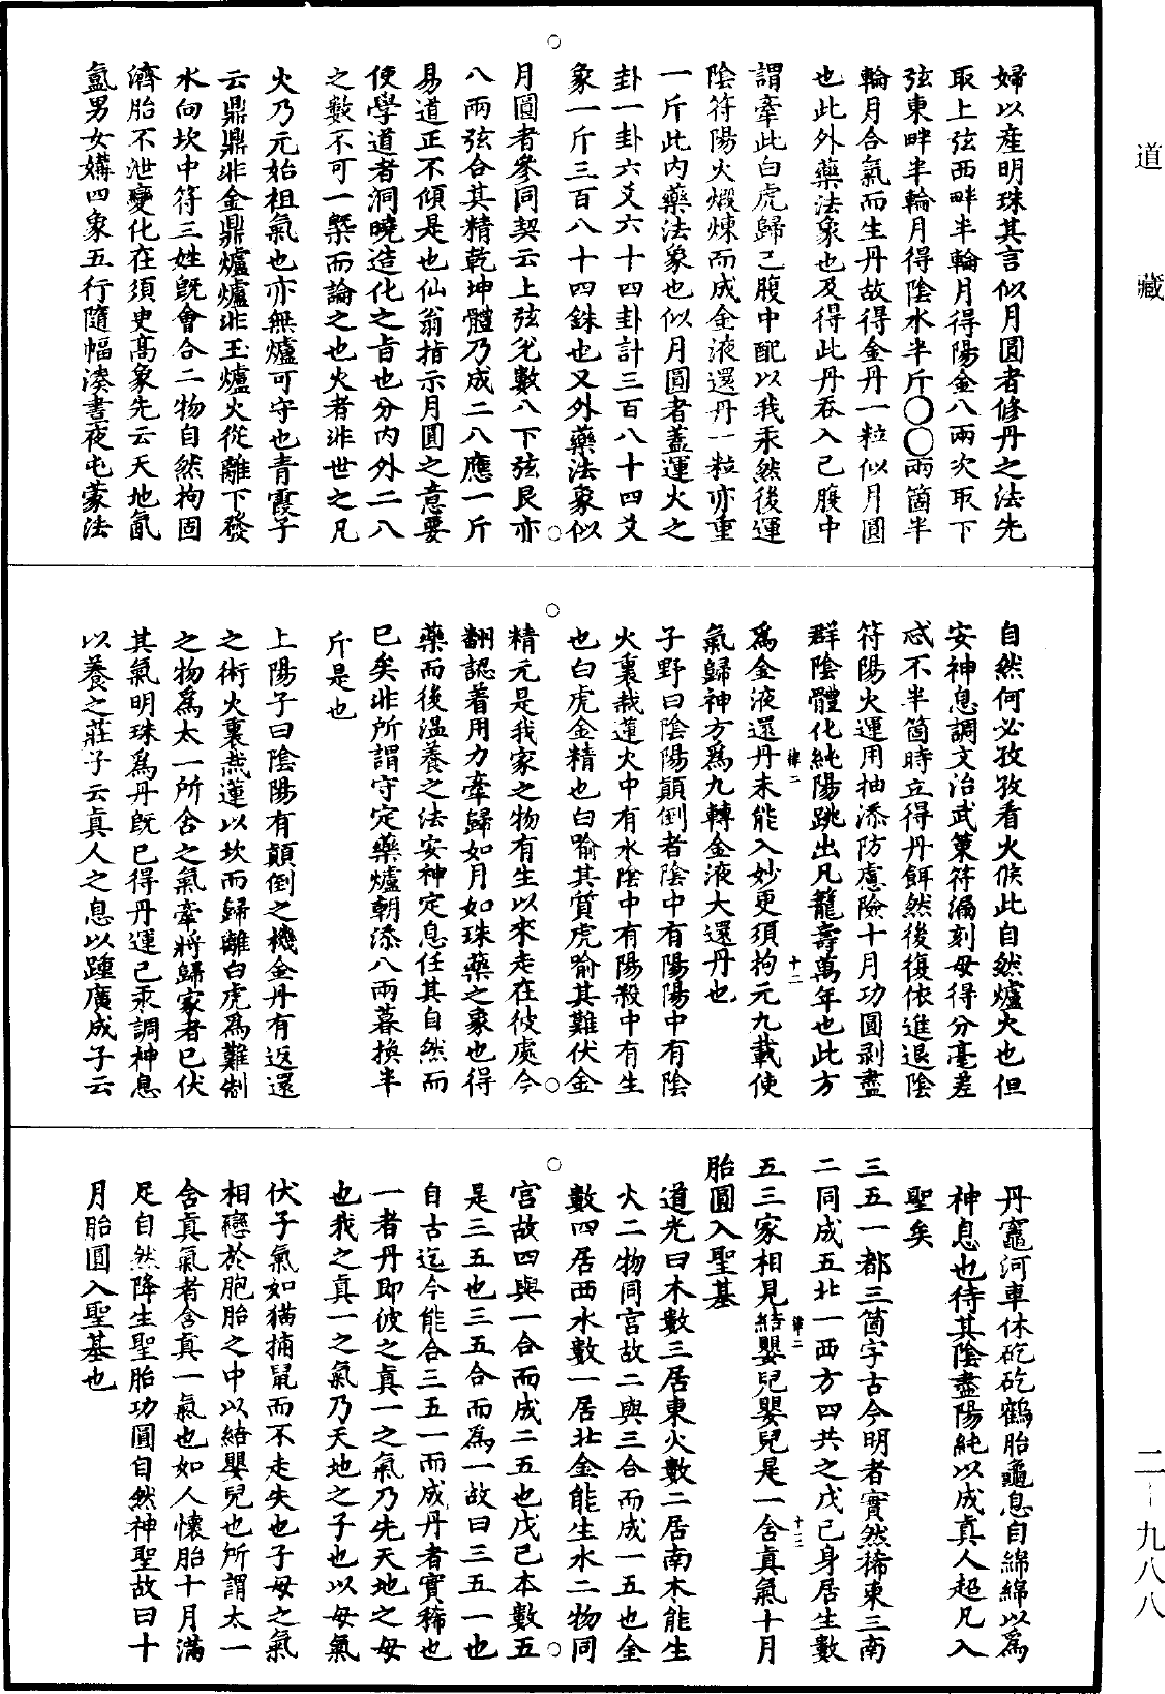 道藏
二－九八八
婦以産明珠其言似月圓者修丹之法先
取上弦西畔半輪月得陽金八兩次取下
弦東畔半輪月得陰水半斤〇〇兩箇半
輪月合氣而生丹故得金丹一粒似月圓
也此外藥法象也及得此丹吞入己腹中
謂牽此白虎歸己腹中配以我汞然後運
陰符陽火煅煉而成金液還丹一粒亦重
一斤此内藥法象也似月圓者蓋運火之
卦一卦六爻六十四卦計三百八十四爻
象一斤三百八十四銖也又外藥法象似
月圓者參同契云上弦兌數八下弦艮亦
八兩弦合其精乾坤體乃成二八應一斤
易道正不傾是也仙翁指示月圓之意要
使學道者洞曉造化之旨也分内外二八
之數不可一槩而論之也火者非世之凡
火乃元始祖氣也亦無爐可守也青霞子
云鼎鼎非金鼎爐爐非玉爐火從離下發
水向坎中符三姓旣會合二物自然拘固
濟胎不泄變化在須臾髙象先云天地氤
氳男女媾四象五行隨輻湊晝夜屯蒙法
自然何必孜孜看火候此自然爐火也但
安神息調文治武策符漏刻毋得分毫差
忒不半箇時立得丹餌然後復依進退陰
符陽火運用抽添防慮險十月功圓剥盡
群陰體化純陽跳出凡籠壽萬年也此方
爲金液還丹未能入妙更須拘元九載使
氣歸神方爲九轉金液大還丹也
子野曰陰陽顛倒者陰中有陽陽中有陰
火裏栽蓮火中有水陰中有陽殺中有生
也白虎金精也白喻其質虎喻其難伏金
精元是我家之物有生以來走在彼處今
翻認着用力牽歸如月如珠藥之象也得
藥而後温養之法安神定息任其自然而
已矣非所謂守定藥爐朝添八兩暮換半
斤是也
上陽子曰陰陽有顛倒之機金丹有返還
之術火裏栽蓮以坎而歸離白虎爲難制
之物爲太一所含之氣牽將歸家者已伏
其氣明珠爲丹旣已得丹運己汞調神息
以養之莊子云真人之息以踵廣成子云
丹竈河車休矻矻鶴胎龜息自綿綿以爲
神息也待其陰盡陽純以成真人超凡入
聖矣
三五一都三箇字古今明者實然稀東三南
二同成五北一西方四共之戊己身居生數
五三家相見結嬰兒嬰兒是一含真氣十月
胎圓入聖基
道光曰木數三居東火數二居南木能生
火二物同宮故二與三合而成一五也金
數四居西水數一居北金能生水二物同
宮故四與一合而成二五也戊己本數五
是三五也三五合而爲一故曰三五一也
自古迄今能合三五一而成丹者實稀也
一者丹即彼之真一之氣乃先天地之母
也我之真一之氣乃天地之子也以母氣
伏子氣如猫捕鼠而不走失也子母之氣
相戀於胞胎之中以結嬰兒也所謂太一
含真氣者含真一氣也如人懷胎十月滿
足自然降生聖胎功圓自然神聖故曰十
月胎圓入聖基也
律二
十二
律二
十三